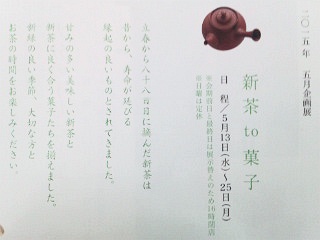 二〇一五年　五月企画展
新茶 to 菓子
日　程／5月13日(水)～25日(月)
※会期前日と最終日は展示替えのため16時閉店
※日曜は定休
立春から八十八日目に摘んだ新茶は
昔から、寿命が延びる
縁起の良いものとされてきました。
甘みの多い美味しい新茶と
新茶に良く合う菓子たちを揃えました。
新緑の良い季節、大切な方と
お茶の時間をお楽しみください。